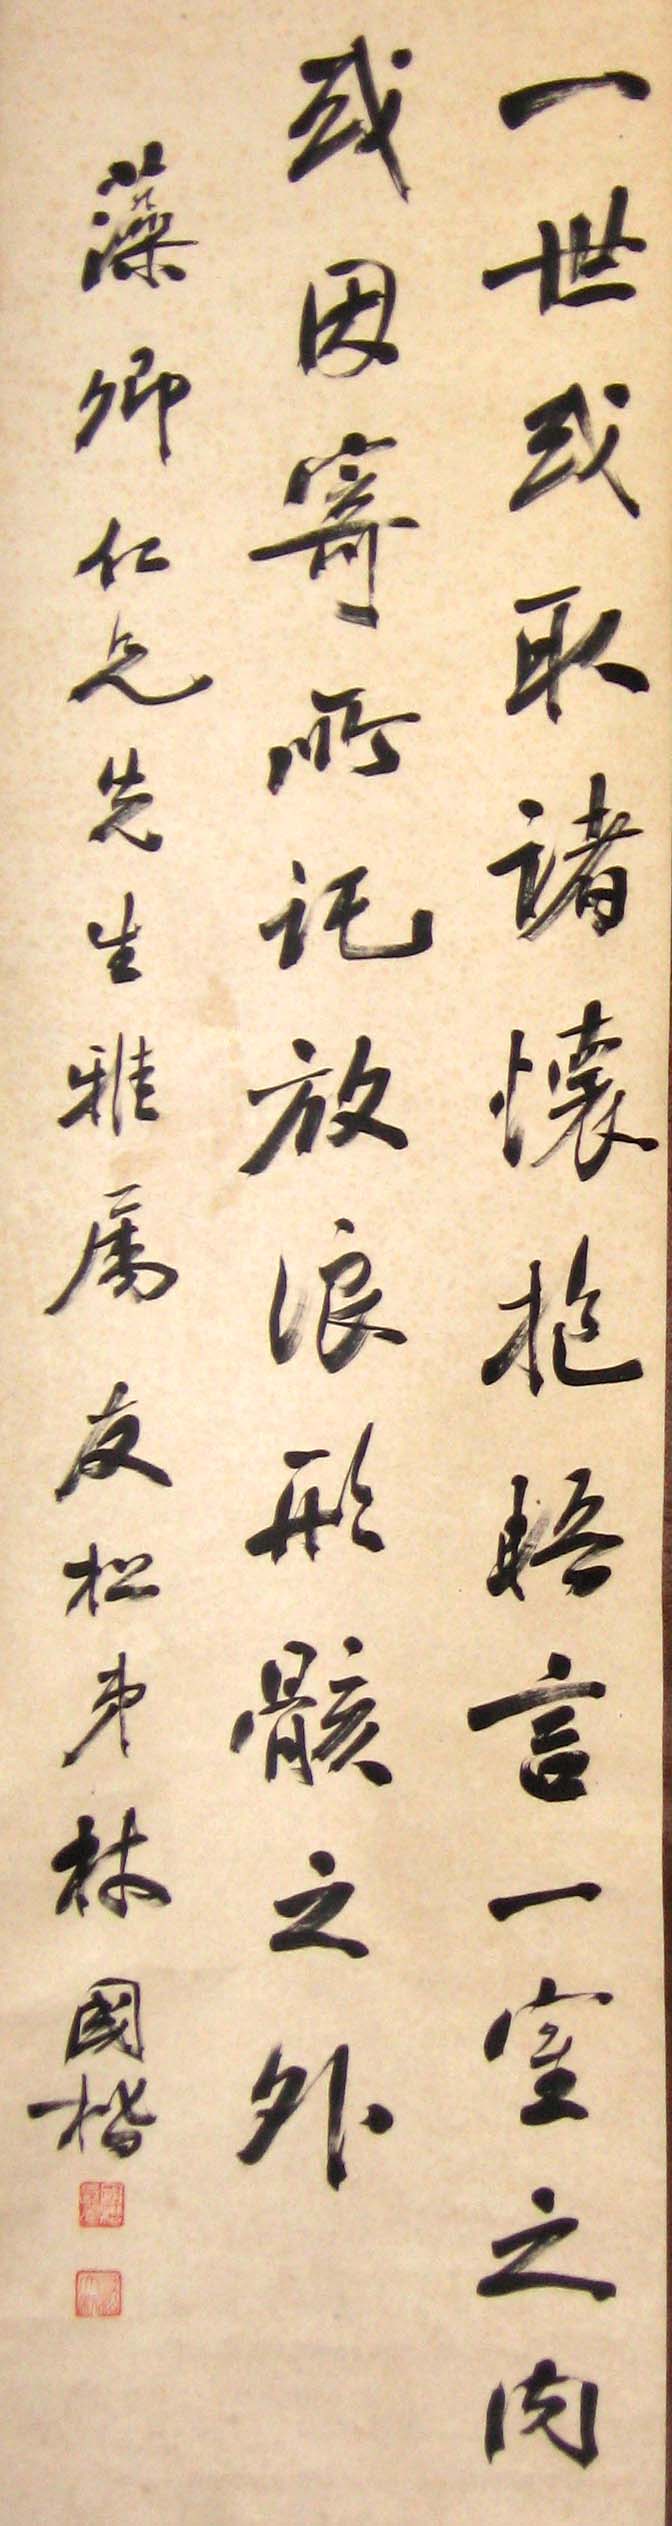 一世或取諸懷抱晤言一室之內
或因寄所託放浪形骸之外
藻卿仁兄先生雅屬 友松弟林國楷